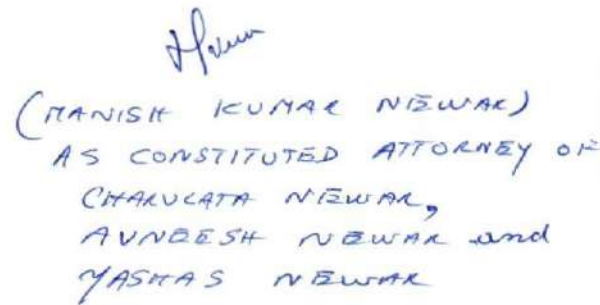 (MANISH KUMAR NEWAR)
AS CONSTITUTED ATTORNEY OF
CHARULATA NEWAR,
AVNEESH NEWAR and
YASHAS NEWAR